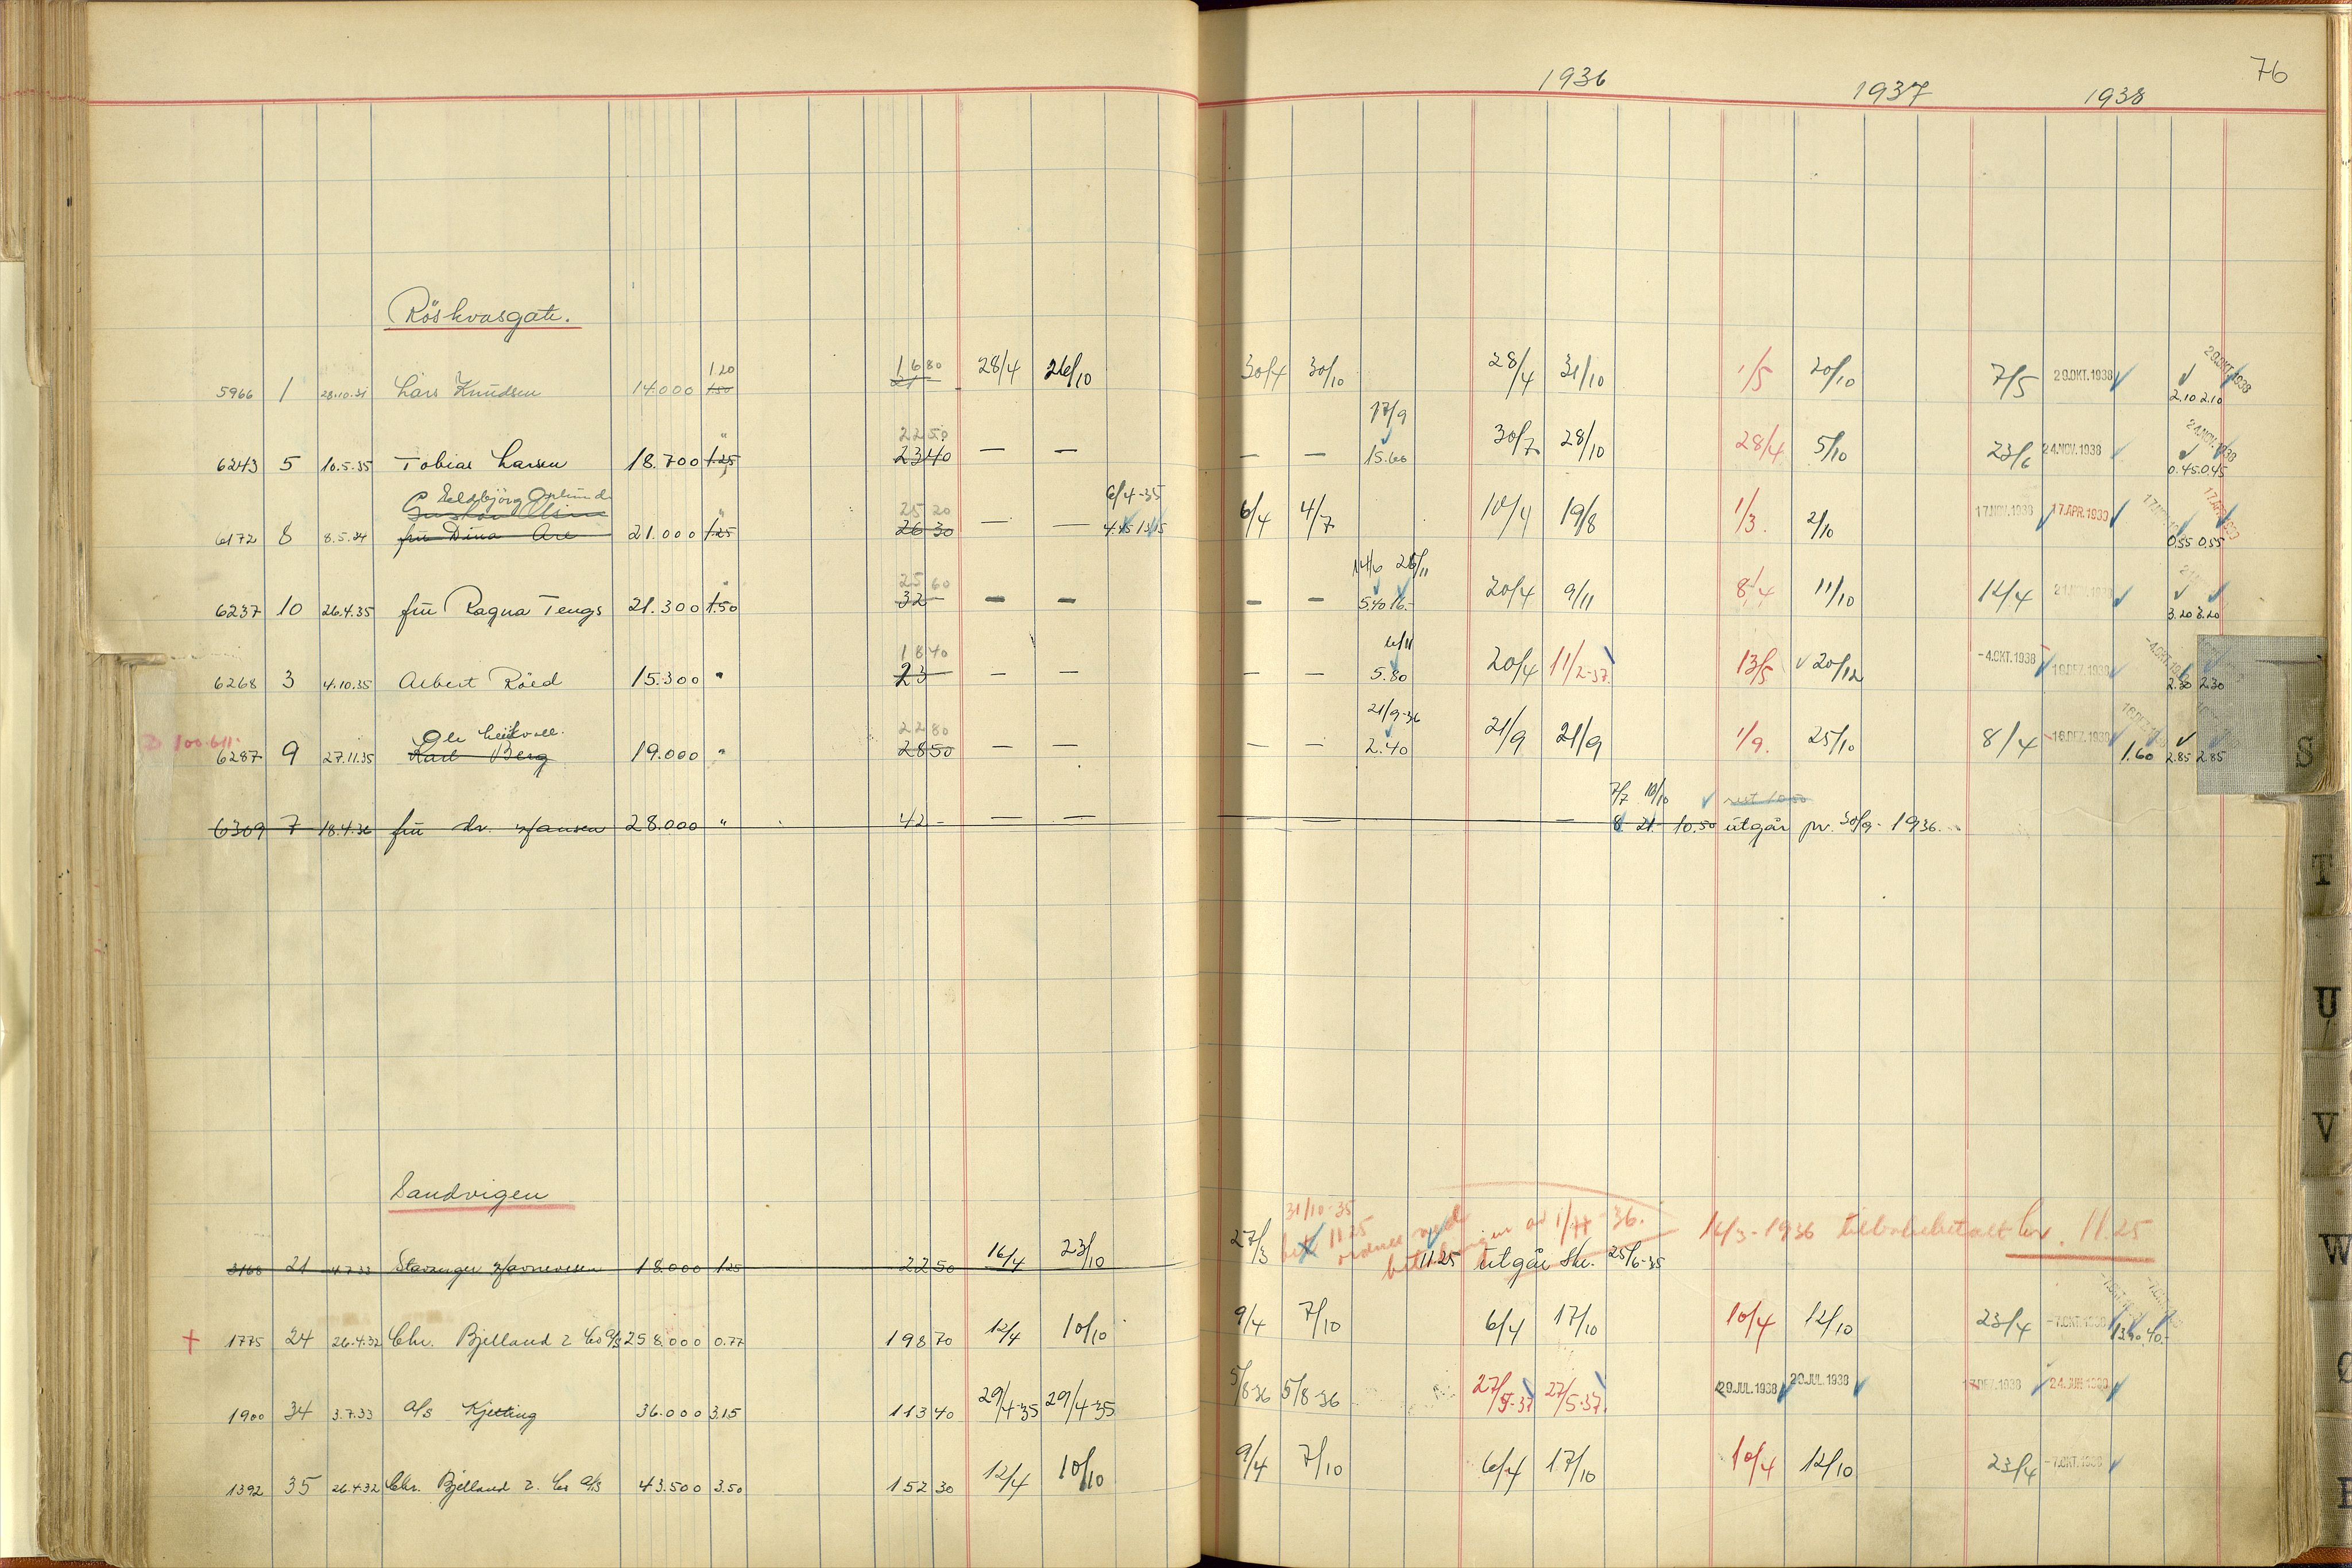 76
1936 1937 1938
Röskvasgate.
1 20 16 80
5966 1 28.10.31 Lars Knudsen 14.000 1.50 21 - 28/4 26/10 30/4 30/10 28/4 31/10 1/5 20/10 7/5 29.OKT.1938 29.OKT.1938
2.10 2.10
" 22 50 17/9
6243 5 10.5.35 Tobias Larsen 18.700 1.25 23 40 — — — — 15.60 30/7 28/10 28/4 5/10 23/6 24.NOV.1938 24.NOV.1938
0.45 0.45
Eldbjörg
" 25 20 6/4-35
6172 8 8.5.34 fru Dina Are 21.000 1.25 26 30 — — 6/4 4/7 10/4 19/8 1/3. 2/10 17.NOV.1938 17.APR.1939
0.55 0.55
" 25 60 14/6 26/11
6237 10 26.4.35 fru Ragna Tengs 21.300 1.50 32 — — — — 5.40 16.- 20/4 9/11 8/4 11/10 12/4
3.20 3.20
18 40 6/11
6268 3 4.10.35 Albert Röed 15.300 " 23 — — — — 5.80 20/4 11/2-37. 13/5 20/12 -4.OKT.1938 16.DEZ.1938
2.30 2.30
Ole 22 80 21/9-36
6287 9 27.11.35 Karl Berg 19.000 " 28 50 — — — — 2.40 21/9 21/9 1/9. 25/10 8/4 16.DEZ.1938 1.60 2.85 2.85
S
7/7 10/10 rest 10.50
6309 7 18.4.36 fru dr. Hansen 28.000 " 42 - — — — — — 21.- 10.50 utgår pr. 30/9-1936.
T
U
V
W
Sandvigen
31/10-35
16/3-1936 tilbakebetalt kr. 11.25
21 4.7.33 Stavanger Havnevesen 18.000 1.25 22 50 16/4 23/10 27/3 11.25 utgår skr. 25/6-35
+ 1775 24 26.4.32 Chr. Bjelland & Co A/S 258.000 0.77 198 70 12/4 10/10 9/4 7/10 6/4 17/10 10/4 12/10 23/4 -7.OKT.1938
1900 34 3.7.33 A/S Kjetting 36.000 3.15 113 40 29/4-35 29/4-35 5/8-36 5/8-36 27/5-37 27/5-37. 29.JUL.1938 29.JUL.1938
1392 35 26.4.32 Chr. Bjelland & Co A/S 43.500 3.50 152 30 12/4 10/10 9/4 7/10 6/4 17/10 10/4 12/10 23/4 -7.OKT.1938